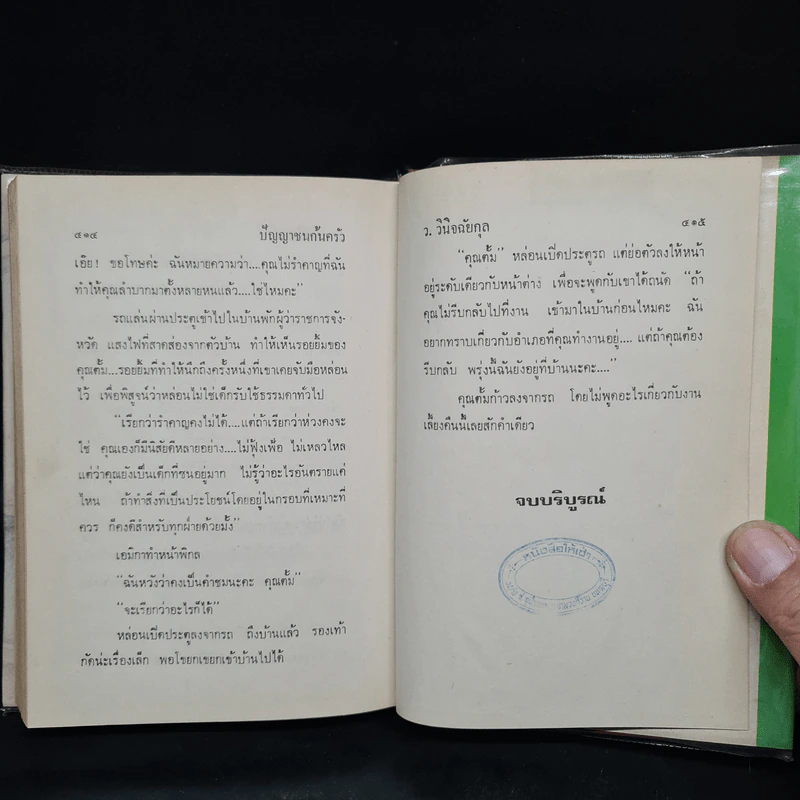 ๔๑๔ ปัญญาชนก้นครัว
เอ๊ย! ขอโทษค่ะ ฉันหมายความว่า....คุณไม่รำคาญที่ฉัน
ทำให้คุณลำบากมาตั้งหลายหนแล้ว....ใช่ไหมคะ"
รถแล่นผ่านประตูเข้าไปในบ้านพักผู้ว่าราชการจัง-
หวัด แสงไฟที่สาดส่องจากตัวบ้าน ทำให้เห็นรอยยิ้มของ
คุณตั้ม...รอยยิ้มที่ทำให้นึกถึงครั้งหนึ่งที่เขาเคยจับมือหล่อน
ไว้ เพื่อพิสูจน์ว่าหล่อนไม่ใช่เด็กรับใช้ธรรมดาทั่วไป
"เรียกว่ารำคาญคงไม่ได้....แต่ถ้าเรียกว่าห่วงคงจะ
ใช่ คุณเองก็มีนิสัยดีหลายอย่าง....ไม่ฟุ้งเฟ้อ ไม่เหลวไหล
แต่ว่าคุณยังเป็นเด็กที่ซนอยู่มาก ไม่รู้ว่าอะไรอันตรายแค่
ไหน ถ้าทำสิ่งที่เป็นประโยชน์โดยอยู่ในกรอบที่เหมาะที่
ควร ก็คงดีสำหรับทุกฝ่ายด้วยมั้ง"
เอมิกาทำหน้าพิกล
"ฉันหวังว่าคงเป็นคำชมนะคะ คุณตั้ม"
"จะเรียกว่าอะไรก็ได้"
หล่อนเปิดประตูลงจากรถ ถึงบ้านแล้ว รองเท้า
กัดน่ะเรื่องเล็ก พอโขยกเขยกเข้าบ้านไปได้
ว. วินิจฉัยกุล ๔๑๕
"คุณตั้ม" หล่อนเปิดประตูรถ แต่ย่อตัวลงให้หน้า
อยู่ระดับเดียวกับหน้าต่าง เพื่อจะพูดกับเขาได้ถนัด "ถ้า
คุณไม่รีบกลับไปที่งาน เข้ามาในบ้านก่อนไหมคะ ฉัน
อยากทราบเกี่ยวกับอำเภอที่คุณทำงานอยู่....แต่ถ้าคุณต้อง
รีบกลับ พรุ่งนี้ฉันยังอยู่ที่บ้านนะคะ...."
คุณตั้มก้าวลงจากรถ โดยไม่พูดอะไรเกี่ยวกับงาน
เลี้ยงคืนนี้เลยสักคำเดียว
จบบริบูรณ์
หนังสือให้เช่า